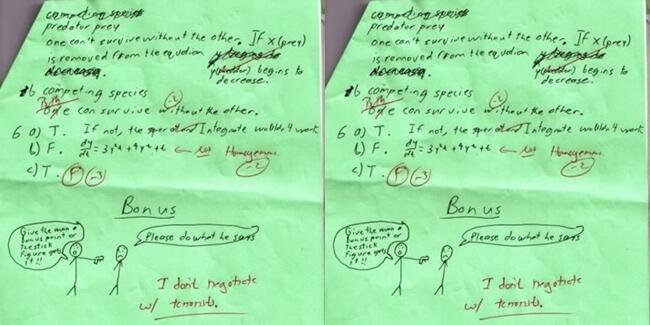 competing species
predator prey
one can't survive without the other. If x (prey)
is removed from the equation
y(predator) begins to
decrease.
b competing species
Both
One can survive without the other. (-2)
6 a) T. If not, the Integrate wouldn't work
b) F. dy/dt = 3y²t + 4y²+t ← not Homogeneous (-2)
c) T. F -3
Bonus
Give the man a
bonus point or
the stick
figure gets
it!!
Please do what he says
I don't negotiate
w/ terrorists.
competing species
predator prey
one can't survive without the other. If x (prey)
is removed from the equation
y(predator) begins to
decrease.
b competing species
Both
One can survive without the other. (-2)
6 a) T. If not, the Integrate wouldn't work
b) F. dy/dt = 3y²t + 4y²+t ← not Homogeneous (-2)
c) T. F -3
Bonus
Give the man a
bonus point or
the stick
figure gets
it!!
Please do what he says
I don't negotiate
w/ terrorists.